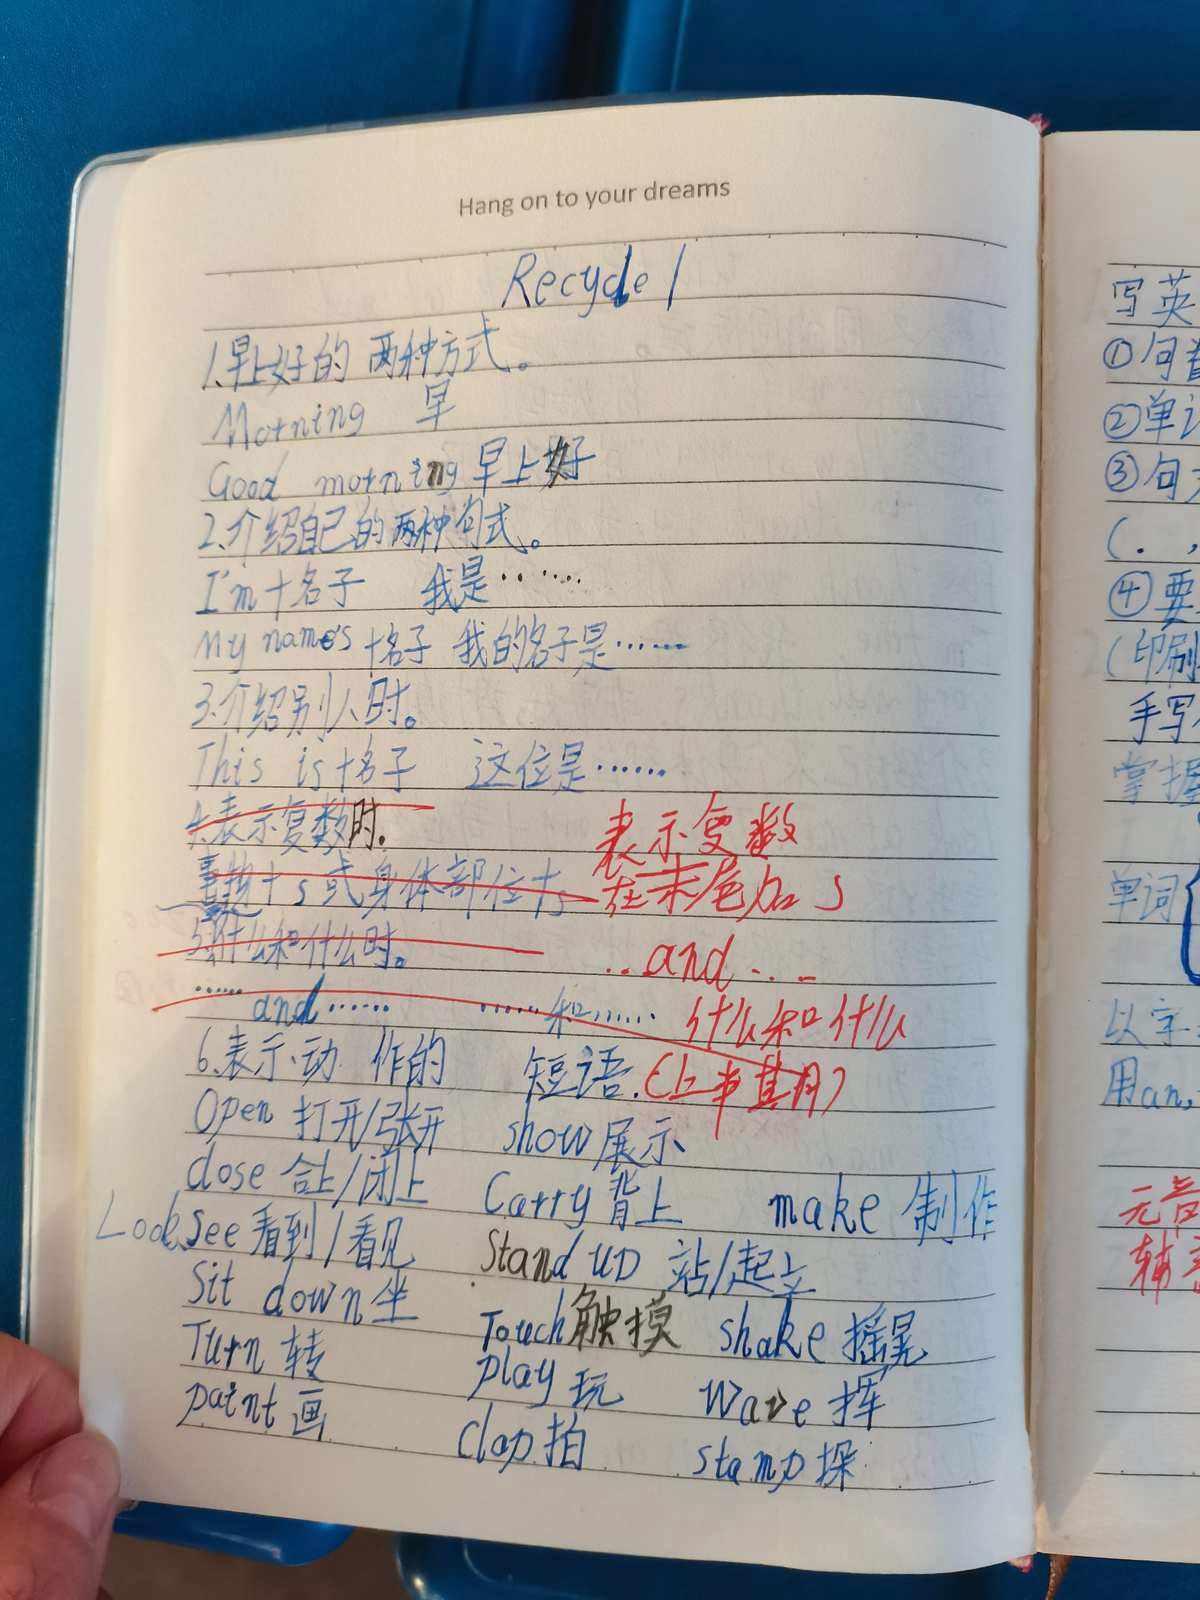 Hang on to your dreams
Recycle 1
1.早上好的 两种方式。
Morning 早
Good morning 早上好
2.介绍自己的两种句式。
I'm+名子 我是……
My name's +名子 我的名子是……
3.介绍别人时。
This is+名子 这位是……
4.表示复数时.
表示复数
事物+s或身体部位+s
在末尾加s
5.什么和什么时。
..and...
……and…… ……和……
什么和什么
6.表示动 作的 短语.(上半其月)
Open 打开/张开 show展示
close 合上/闭上 Carry背上 make 制作
Look see看到/看见 Stand up 站/起立
Sit down坐 Touch触摸 shake 摇晃
Turn 转 play 玩 Wave 挥
paint 画 clap 拍 stamp 跺
写英
①
②单
③句
(. ,
④要
(印刷
手写
掌握
单词
以字
用an,
元音
辅